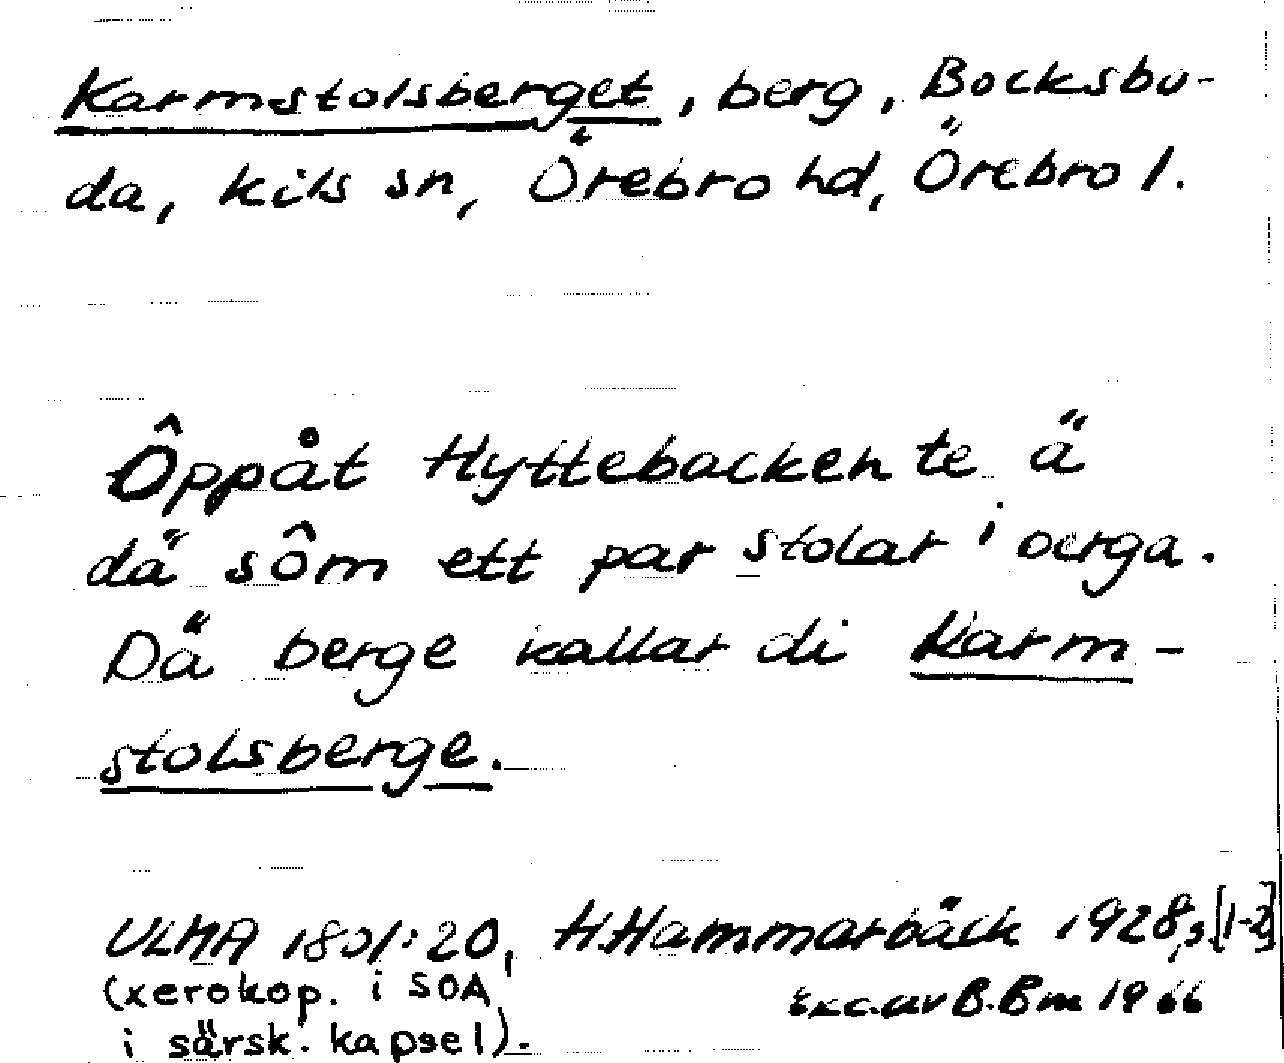 Karmstolsberget, berg, Bocksbo-
da, Kils sn, Örebro hd, Örebro l.
Ôppåt Hyttebacken te ä
dä sôm ett par stolar i berga.
Dä berge kallar di Karm-
stolsberge.
ULMA 1801:20, H.Hammarbäck 1928, s.[1-2]
(xerokop. i SOA
i särsk. kapsel).
Exc. av B.Bm 1966